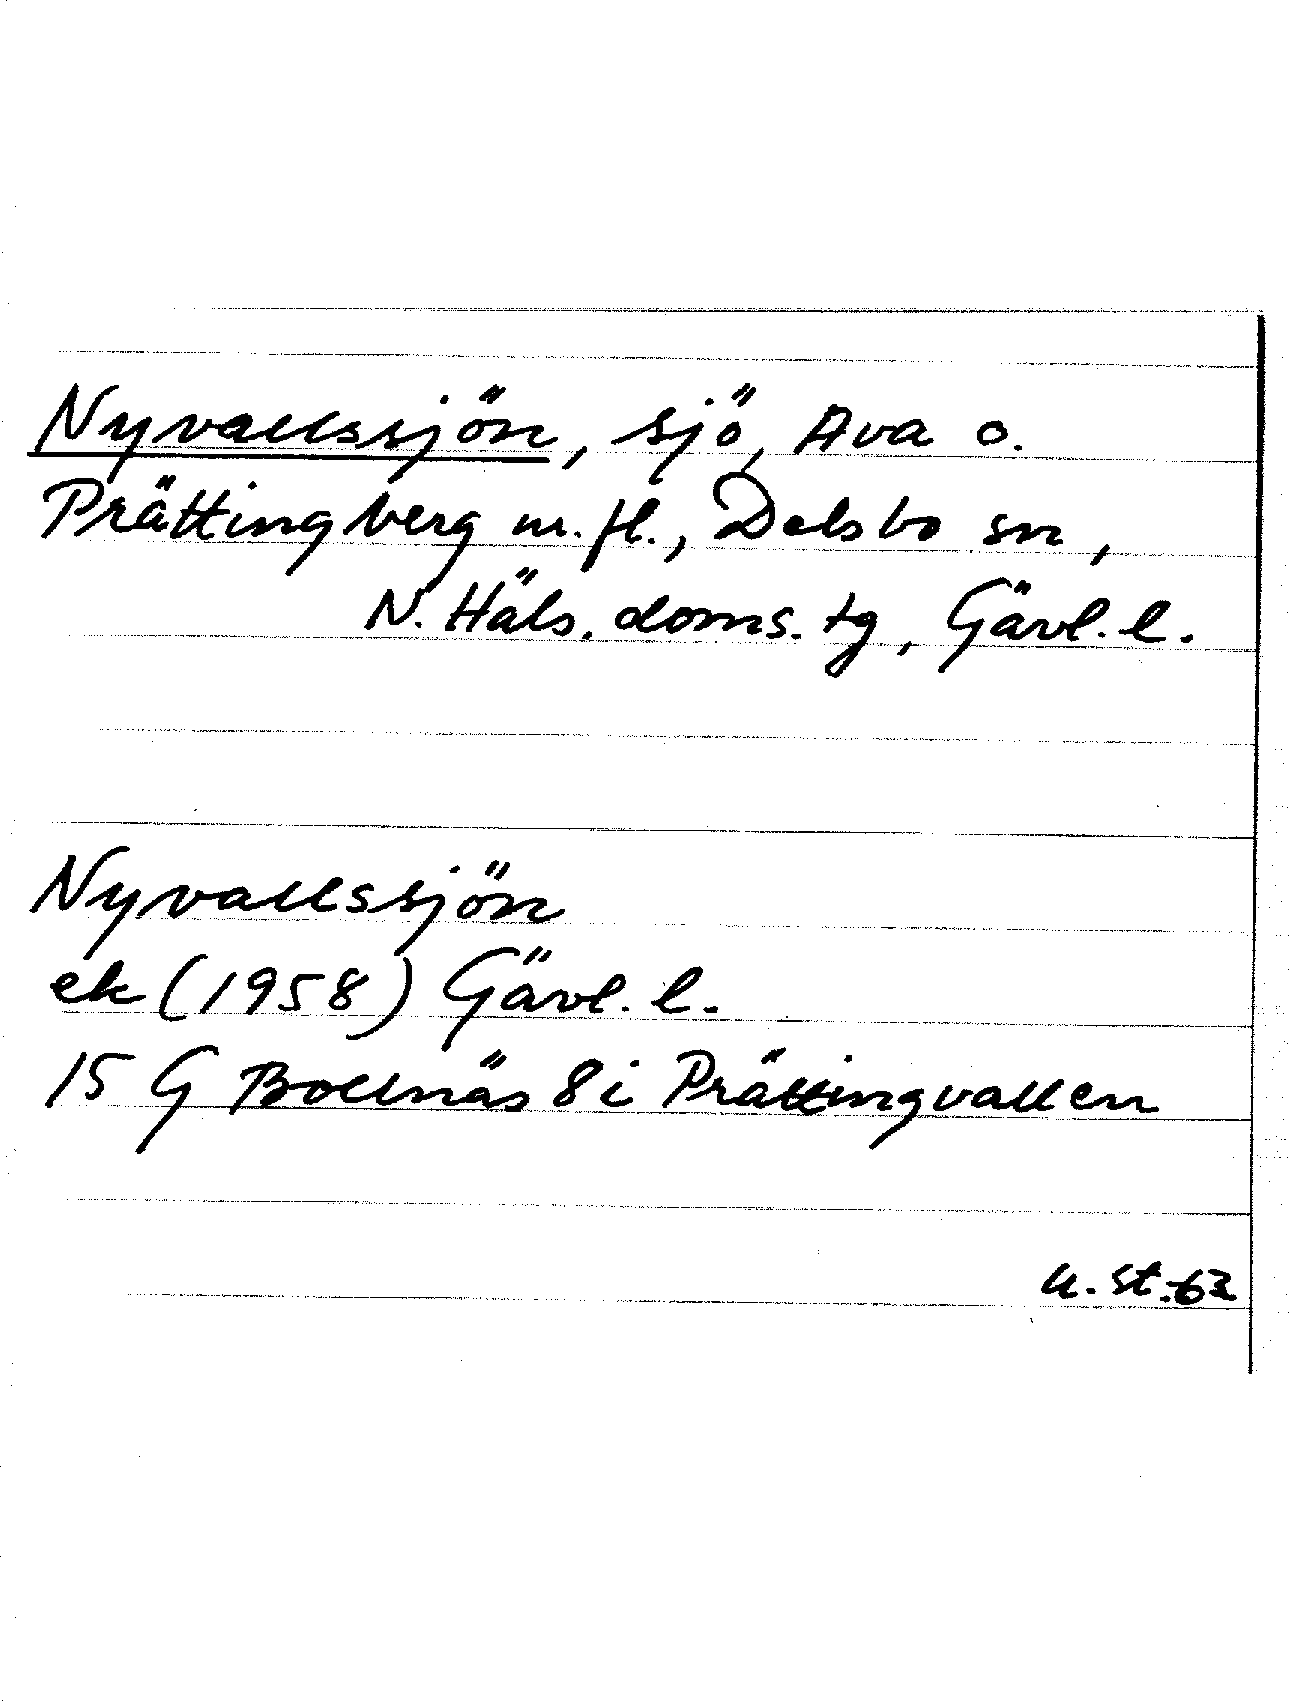 Nyvallssjön, sjö, Ava o.
Prättingberg m.fl., Delsbo sn,
N. Häls. doms. tg, Gävl. l.
Nyvallssjön
ek (1958) Gävl. l.
15 G Bollnäs 8 i Prättingvallen
u. St. 62